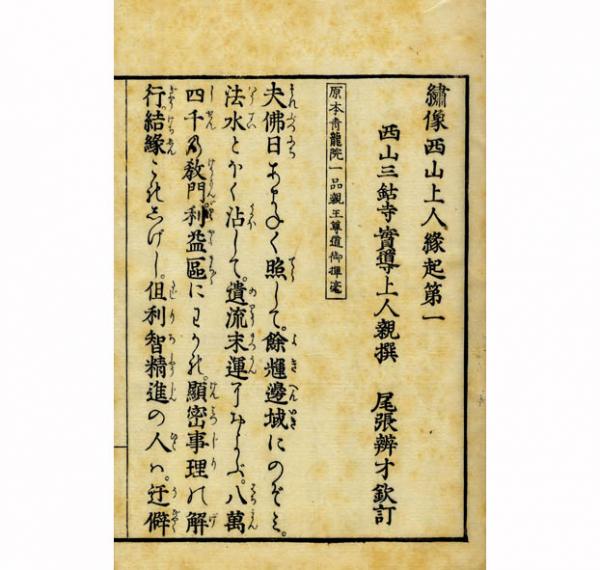 繡像西山上人緣起第一
西山三鈷寺實導上人親撰　尾張辨才欽訂
原本青龍院一品親王尊道御揮毫
夫佛日あまねく照して。餘輝邊域にのぞミ。
法水とほく沾して。遺流末運におよぶ。八萬
四千乃教門利益區にわかれ。顯密事理の解
行結緣これしげし。但利智精進の人ハ。迂僻